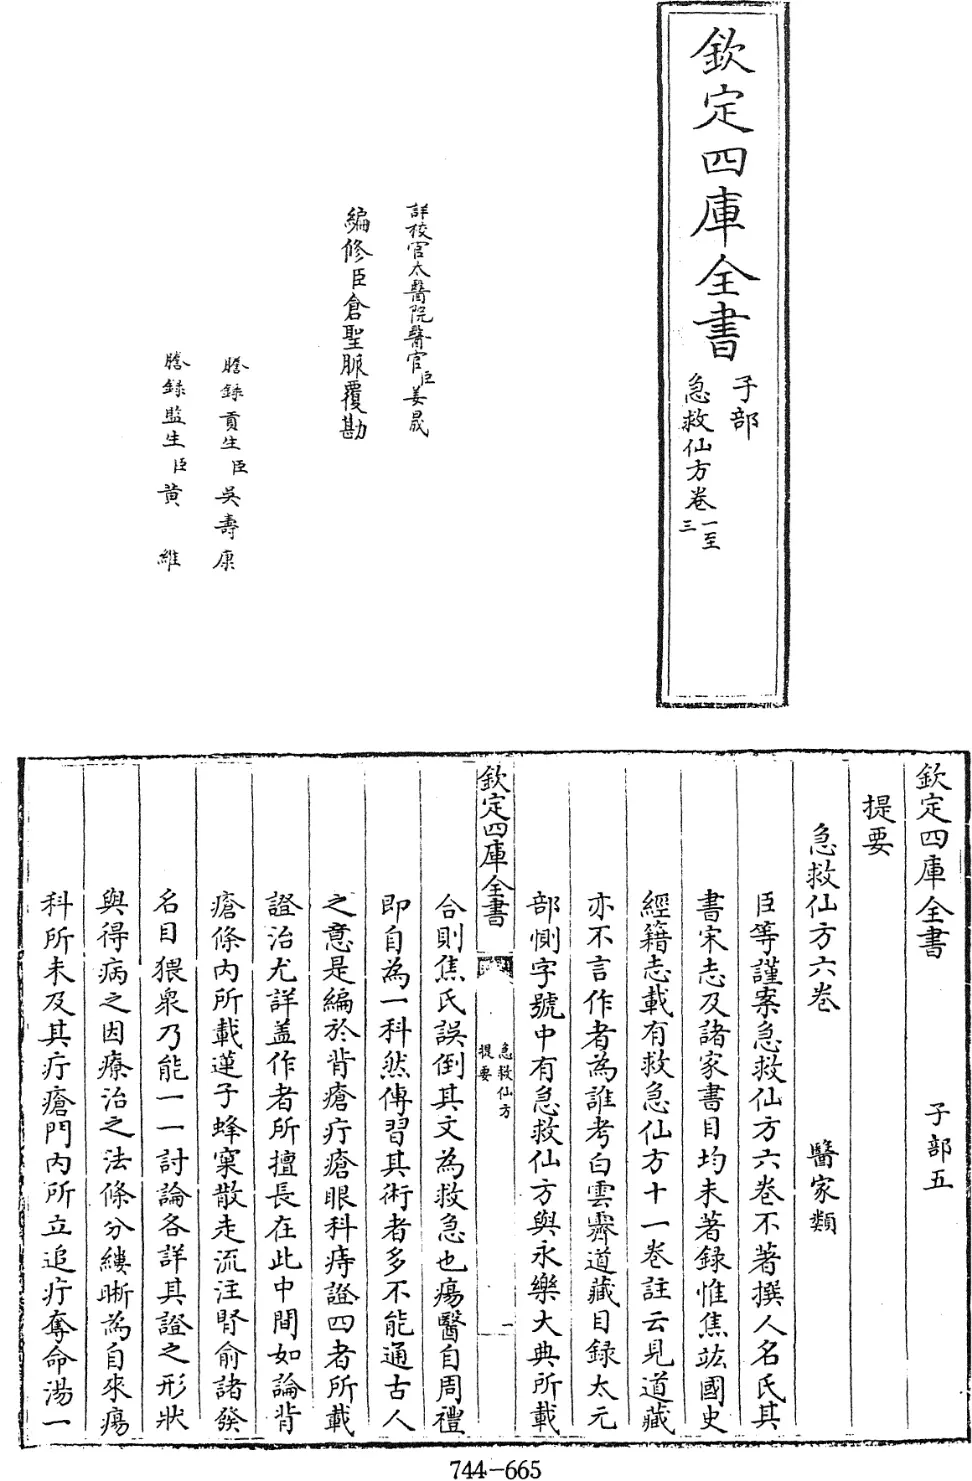 欽定四庫全書
子部
急救仙方卷一至
三
詳校官太醫院醫官臣姜晟
編修臣倉聖脈覆勘
謄錄貢生臣吳壽康
謄錄監生臣黃維
欽定四庫全書 子部五
提要
急救仙方六卷 醫家類
臣等謹案急救仙方六卷不著撰人名氏其
書宋志及諸家書目均未著錄惟焦竑國史
經籍志載有救急仙方十一卷註云見道藏
亦不言作者為誰考白雲霽道藏目録太元
部惻字號中有急救仙方與永樂大典所載
欽定四庫全書
急救仙方
提要
一
合則焦氏誤倒其文為救急也瘍醫自周禮
即自為一科然傳習其術者多不能通古人
之意是編於背瘡疔瘡眼科痔證四者所載
證治尤詳蓋作者所擅長在此中間如論背
瘡條内所載蓮子蜂窠散走流注腎俞諸發
名目猥衆乃能一一討論各詳其證之形狀
與得病之因療治之法條分縷晰為自來瘍
科所未及其疔瘡門内所立追疔奪命湯一
744-665